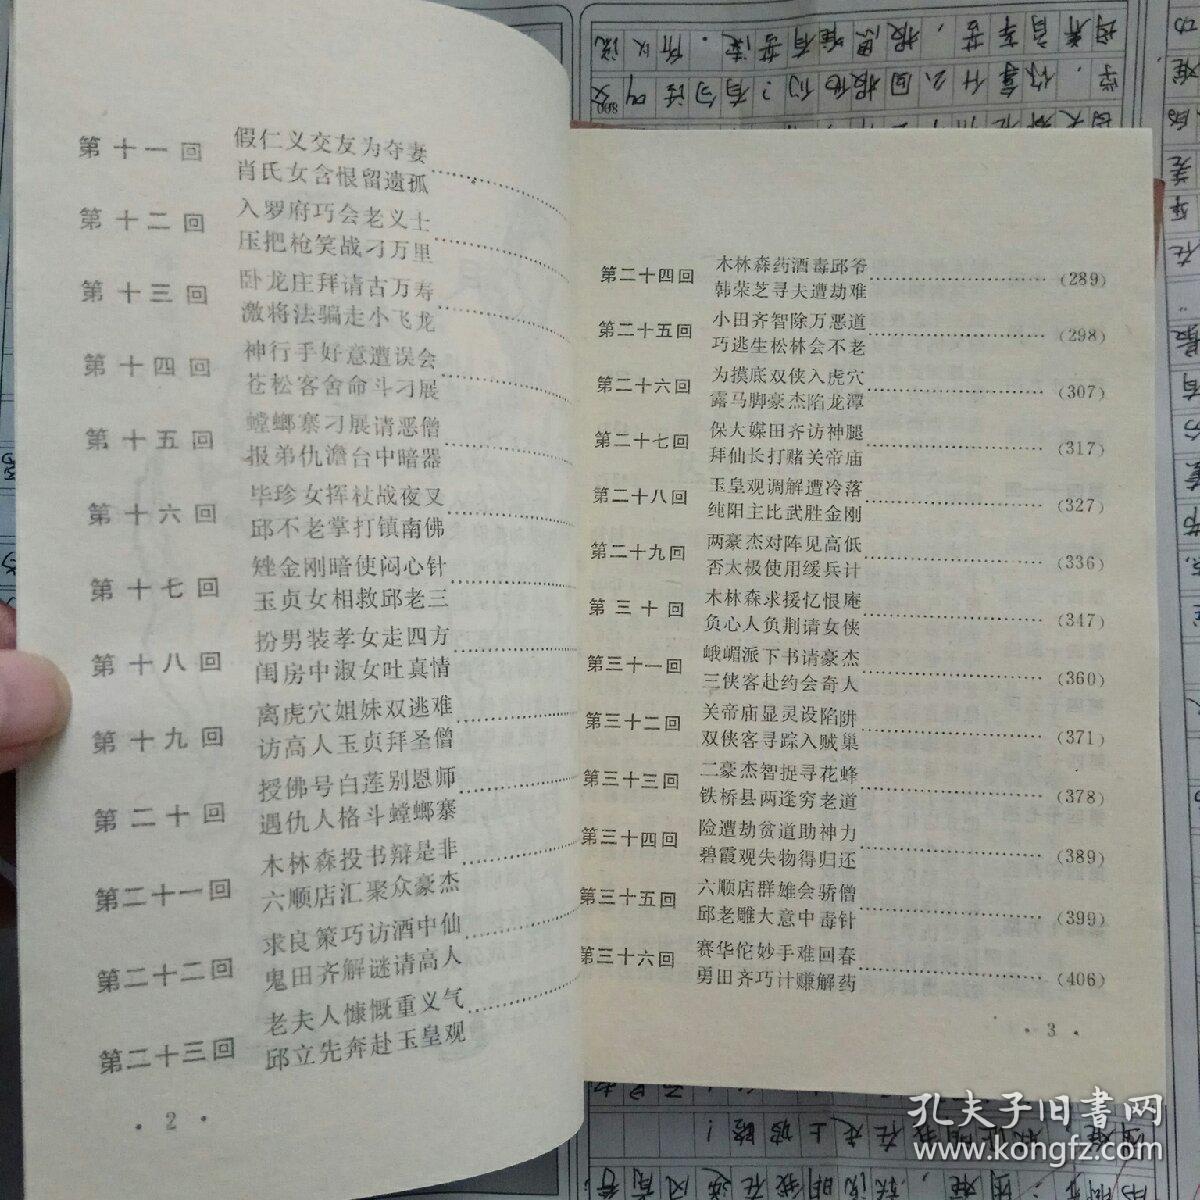 第十一回 假仁义交友为夺妻
肖氏女含恨留遗孤
第十二回 入罗府巧会老义士
压把枪笑战刁万里
第十三回 卧龙庄拜请古万寿
激将法骗走小飞龙
第十四回 神行手好意遭误会
苍松客舍命斗刁展
第十五回 螳螂寨刁展请恶僧
报弟仇澹台中暗器
第十六回 毕珍女挥杖战夜叉
邱不老掌打镇南佛
第十七回 矬金刚暗使闷心针
玉贞女相救邱老三
第十八回 扮男装孝女走四方
闺房中淑女吐真情
第十九回 离虎穴姐妹双逃难
访高人玉贞拜圣僧
第二十回 授佛号白莲别恩师
遇仇人格斗螳螂寨
第二十一回 木林森投书辩是非
六顺店汇聚众豪杰
第二十二回 求良策巧访酒中仙
鬼田齐解谜请高人
第二十三回 老夫人慷慨重义气
邱立先奔赴玉皇观
· 2 ·
第二十四回 木林森药酒毒邱爷
韩荣芝寻夫遭劫难 (289)
第二十五回 小田齐智除万恶道
巧逃生松林会不老 (298)
第二十六回 为摸底双侠入虎穴
露马脚豪杰陷龙潭 (307)
第二十七回 保大媒田齐访神腿
拜仙长打赌关帝庙 (317)
第二十八回 玉皇观调解遭冷落
纯阳主比武胜金刚 (327)
第二十九回 两豪杰对阵见高低
否太极使用缓兵计 (336)
第三十回 木林森求援忆恨庵
负心人负荆请女侠 (347)
第三十一回 峨嵋派下书请豪杰
三侠客赴约会奇人 (360)
第三十二回 关帝庙显灵设陷阱
双侠客寻踪入贼巢 (371)
第三十三回 二豪杰智捉寻花蜂
铁桥县两逢穷老道 (378)
第三十四回 险遭劫贫道助神力
碧霞观失物得归还 (389)
第三十五回 六顺店群雄会骄僧
邱老雕大意中毒针 (399)
第三十六回 赛华佗妙手难回春
勇田齐巧计赚解药 (406)
· 3 ·
孔夫子旧书网
www.kongfz.com